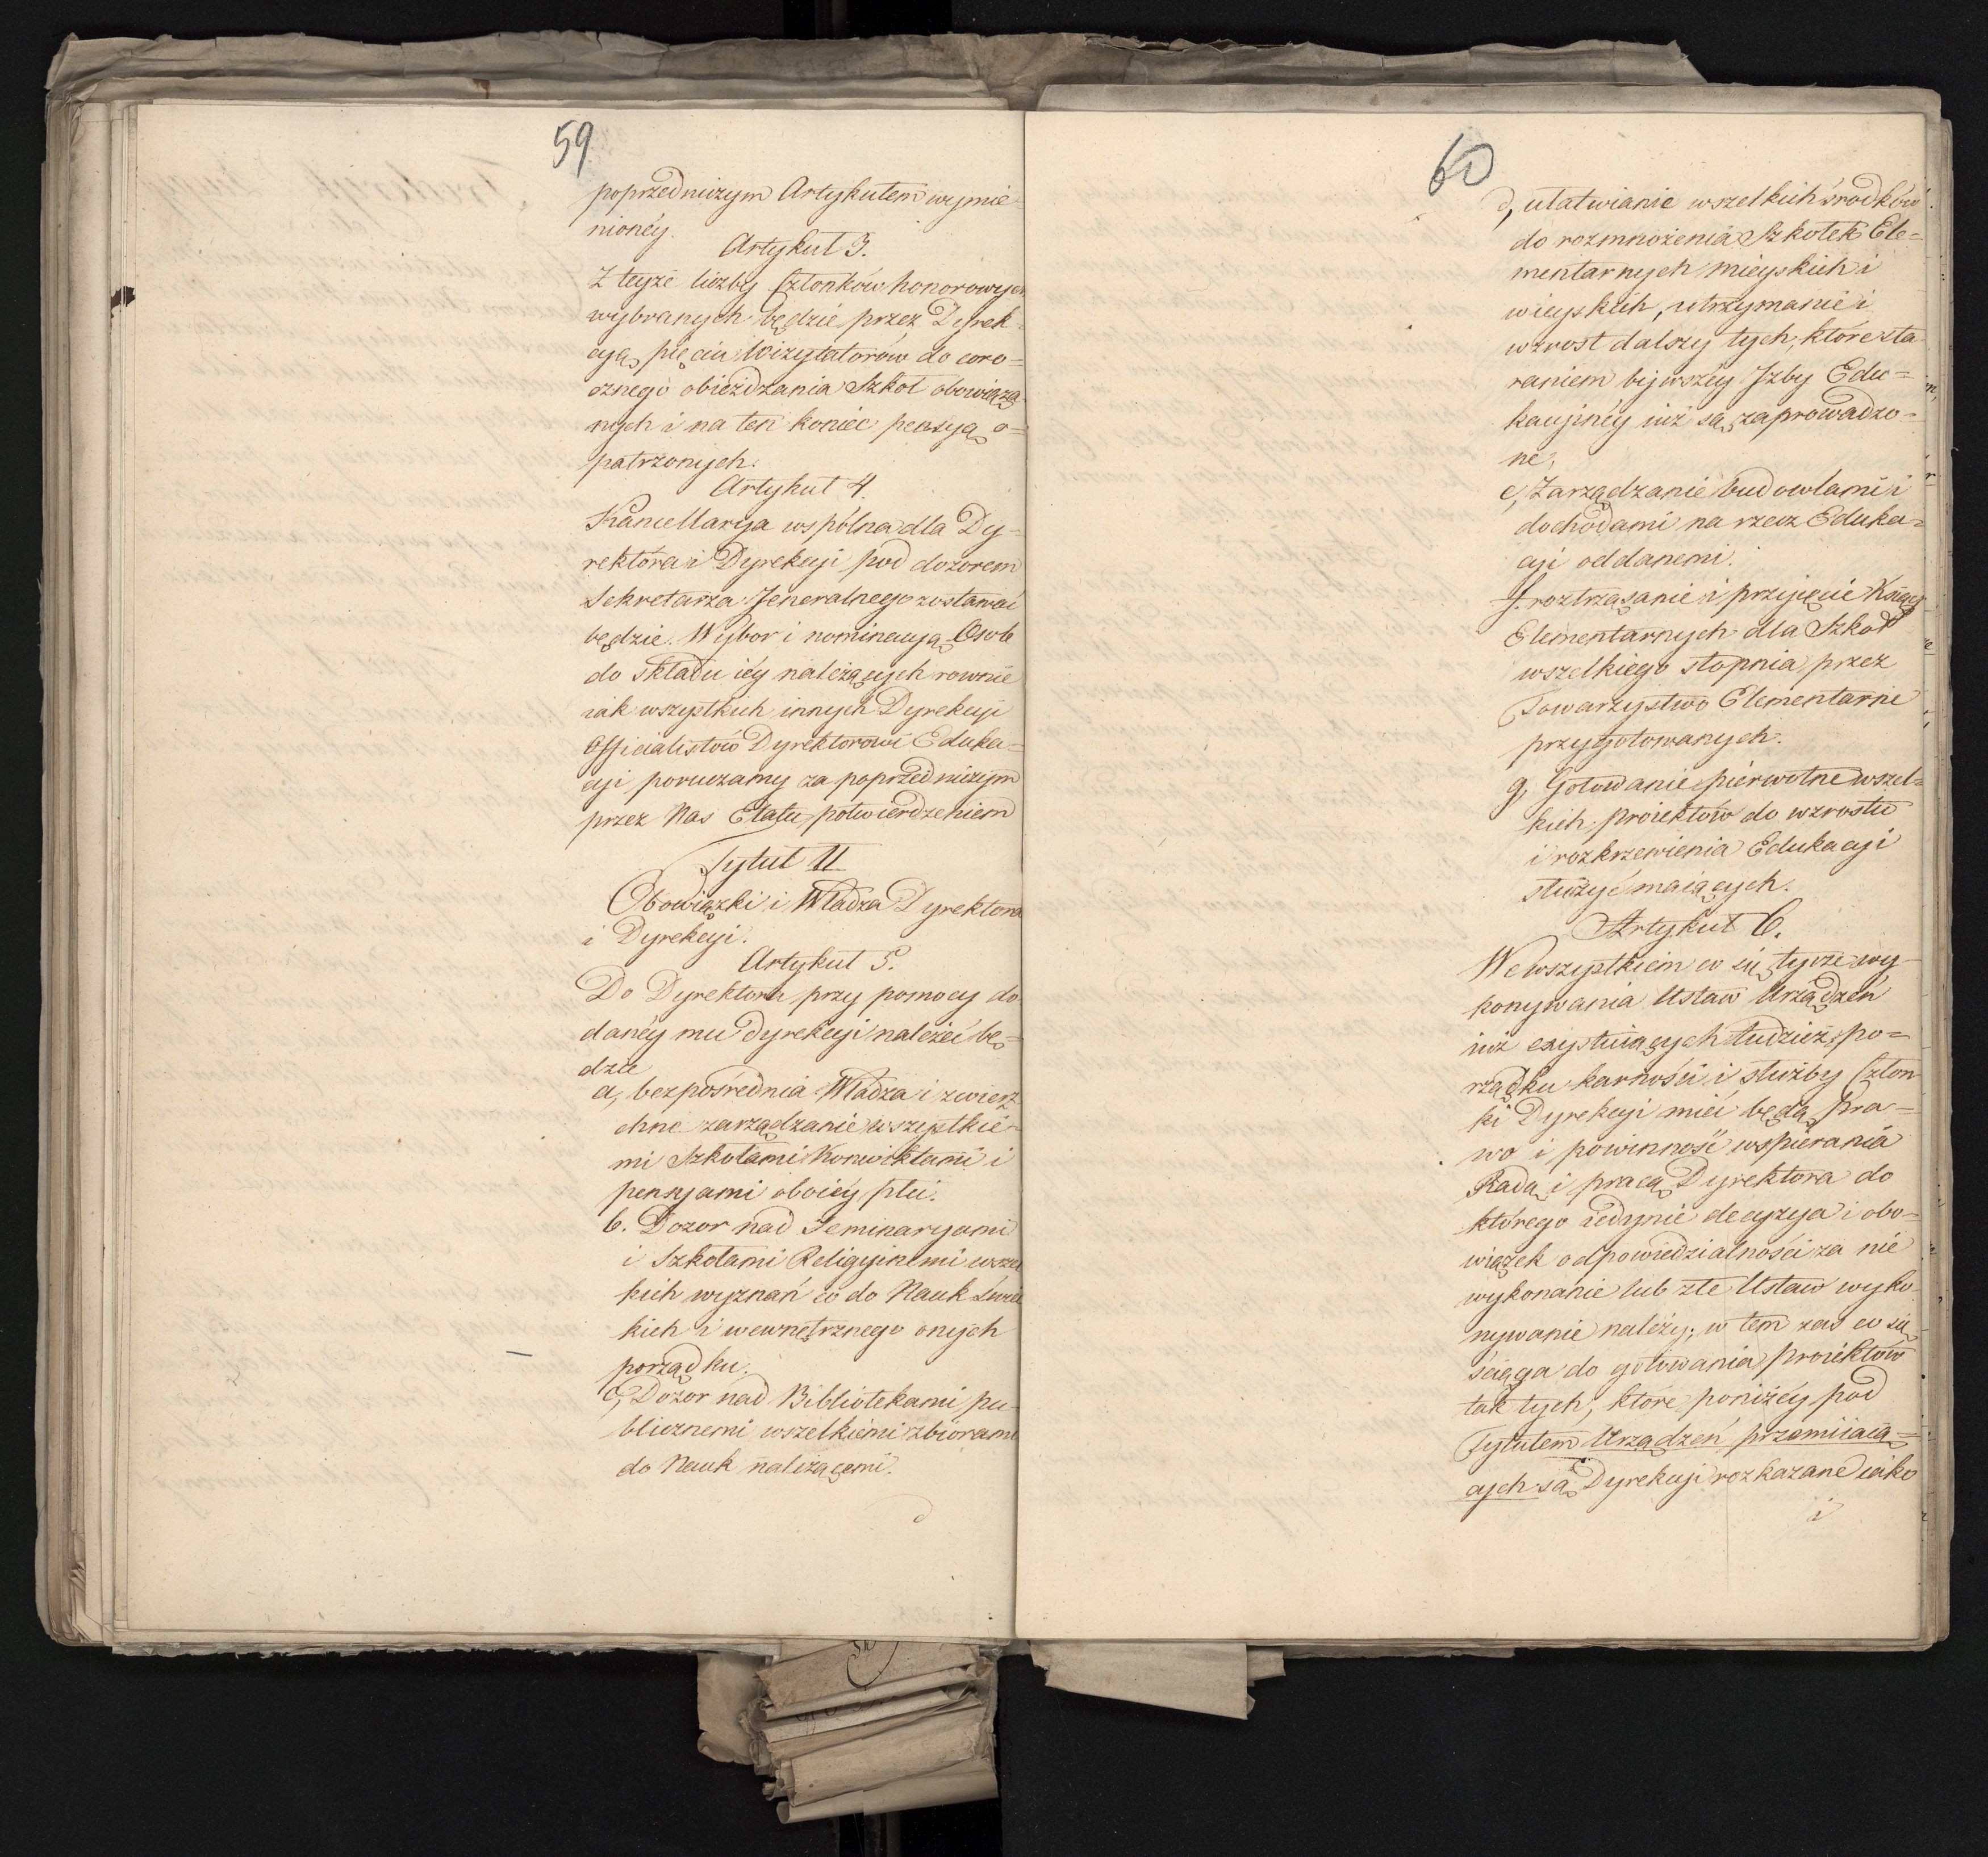 59
poprzedniczym Artykułem wymie-
nionéy.
Artykuł 3.
Z teyże liczby Członków honorowych
wybranych będzie przez Dyrek-
cyą pięciu Wizytatorów do coro-
cznego obieżdżania Szkół obowiąza
nych i na ten koniec pensyą o=
patrzonych.
Artykuł 4.
Kancellarya wspólna dla Dy=
rektora i Dyrekcyi pod dozorem
Sekretarza Jeneralnego zostawać
będzie. Wybor i nominacyą Osob
do składu iéy należących rownie
iak wszystkich innych Dyrekcyi
Officialistów Dyrektorowi Eduka=
cyi poruczamy za poprzedniczym
przez Nas Etatu potwierdzeniem
Tytuł II
Obowiązki i Władza Dyrektora
i Dyrekcyi.
Artykuł 5.
Do Dyrektora przy pomocy do
danéy mu Dyrekcyi należeć bę=
dzie
a, bezpośrednia Władza i zwierz
chne zarządzanie wszystkie-
mi Szkołami Konwiktami i
pensyami oboiéy płci.
b. Dozor nad Seminaryami
i Szkołami Religijnemi wszel
kich wyznań co do Nauk świec
kich i wewnętrznego onych
porządku.
c, Dozor nad Bibliotekami pu-
blicznemi wszelkiemi zbiorami
do Nauk należącemi.
d
60
d, ułatwianie wszelkich środków
do rozmnożenia Szkołek Ele=
mentarnych mieyskich i
wieyskich, utrzymanie i
wzrost dalszy tych, które sta
raniem bywszéy Jzby Edu=
kacyinéy iuż są zaprowadzo-
ne,
e, Zarządzanie budowlami i
dochodami na rzecz Eduka=
cyi oddanemi.
f. roztrząsanie i przyięcie Ksiąg
Elementarnych dla Szkoł
wszelkiego stopnia przez
Towarzystwo Elementarne
przygotowanych.
g, Gotowanie piérwotne wszel=
kich proiektów do wzrostu
i rozkrzewienia Edukacyi
służyć maiących.
Artykuł 6.
We wszystkiém co się tycze wy-
konywania Ustaw Urządzeń
iuż exystuiących tudzież po=
rządku karności i służby Człon
ki Dyrekcyi mieć będą pra=
wo i powinność wspierania
Radą i pracą Dyrektora do
którego iedynie decyzya i obo=
wiązek odpowiedzialności za nie
wykonanie lub złe Ustaw wyko
nywanie należy; w tem zaś co się
ściąga do gotowania proiektów
tak tych, które poniżéy pod
Tytułem Urządzeń przemiiaią=
cych są Dyrekcyi rozkazane iako
i